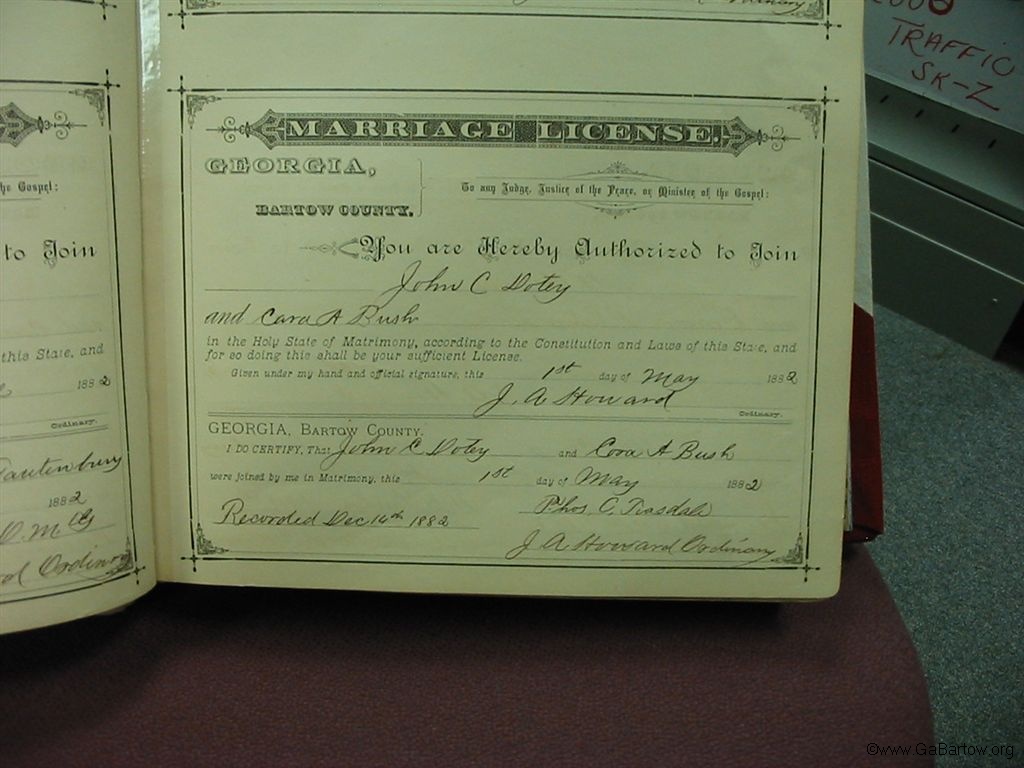 TRAFFIC
SK-Z
the Gospel:
to Join
this State, and
1882
Ordinary.
1882
MARRIAGE LICENSE,
GEORGIA,
BARTOW COUNTY.
To any Judge, Justice of the Peace, or Minister of the Gospel:
You are Hereby Authorized to Join
John C Dotey
and Cora A Bush
in the Holy State of Matrimony, according to the Constitution and Laws of this State, and
for so doing this shall be your sufficient License.
Given under my hand and official signature, this 1st day of May 1882
J. A Howard
Ordinary.
GEORGIA, BARTOW COUNTY.
I DO CERTIFY, That John C Dotey and Cora A Bush
were joined by me in Matrimony, this 1st day of May 1882
Recorded Dec 14th 1882
J A Howard Ordinary
©www.GaBartow.org